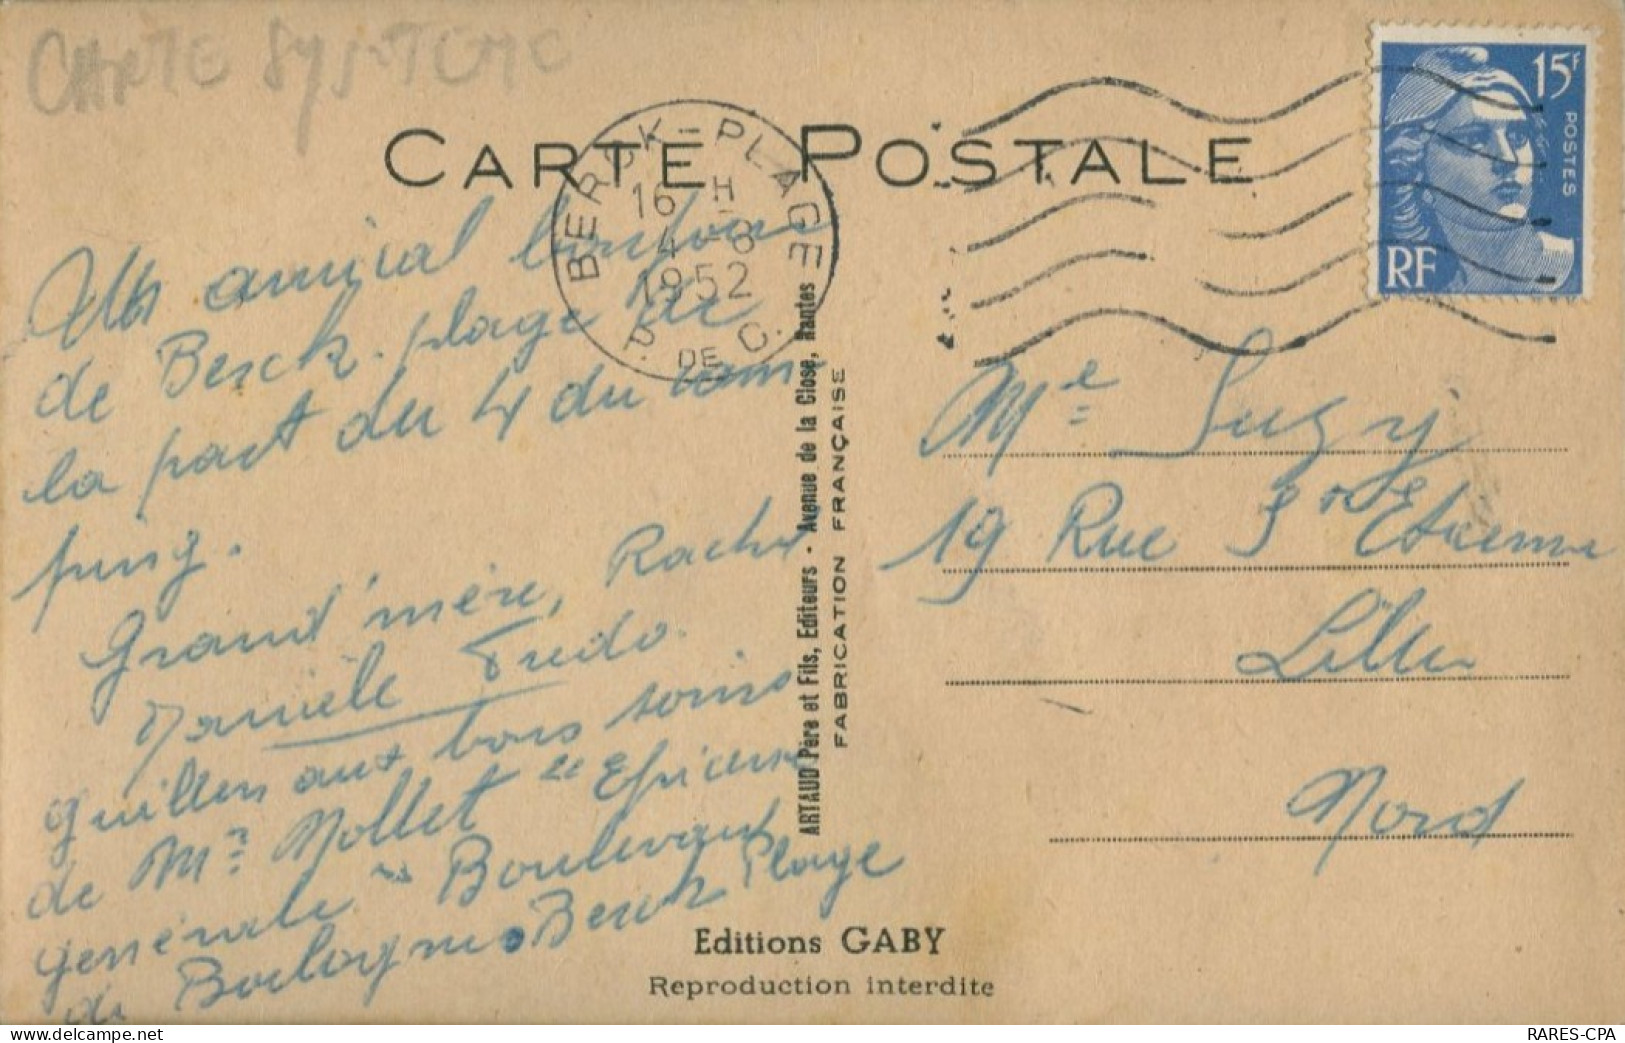 CARTE SYSTEME
CARTE POSTALE
BERCK-PLAGE
16 H
4-8
1952
P. DE C.
15F
POSTES
RF
Un amical bonjour
de Berck-plage de
la part du 4 du cam
ping.
Grand'mère, Rachel
Danièle Fredo.
Guillen aux bons soins
de Mr Mollet "Epicerie
générale" Boulevard
de Boulogne Berck Plage
Me Suzy
19 Rue St Etienne
Lille
Nord
ARTAUD Père et Fils, Editeurs - Avenue de la Close, Nantes
FABRICATION FRANÇAISE
Editions GABY
Reproduction interdite
RARES-CPA